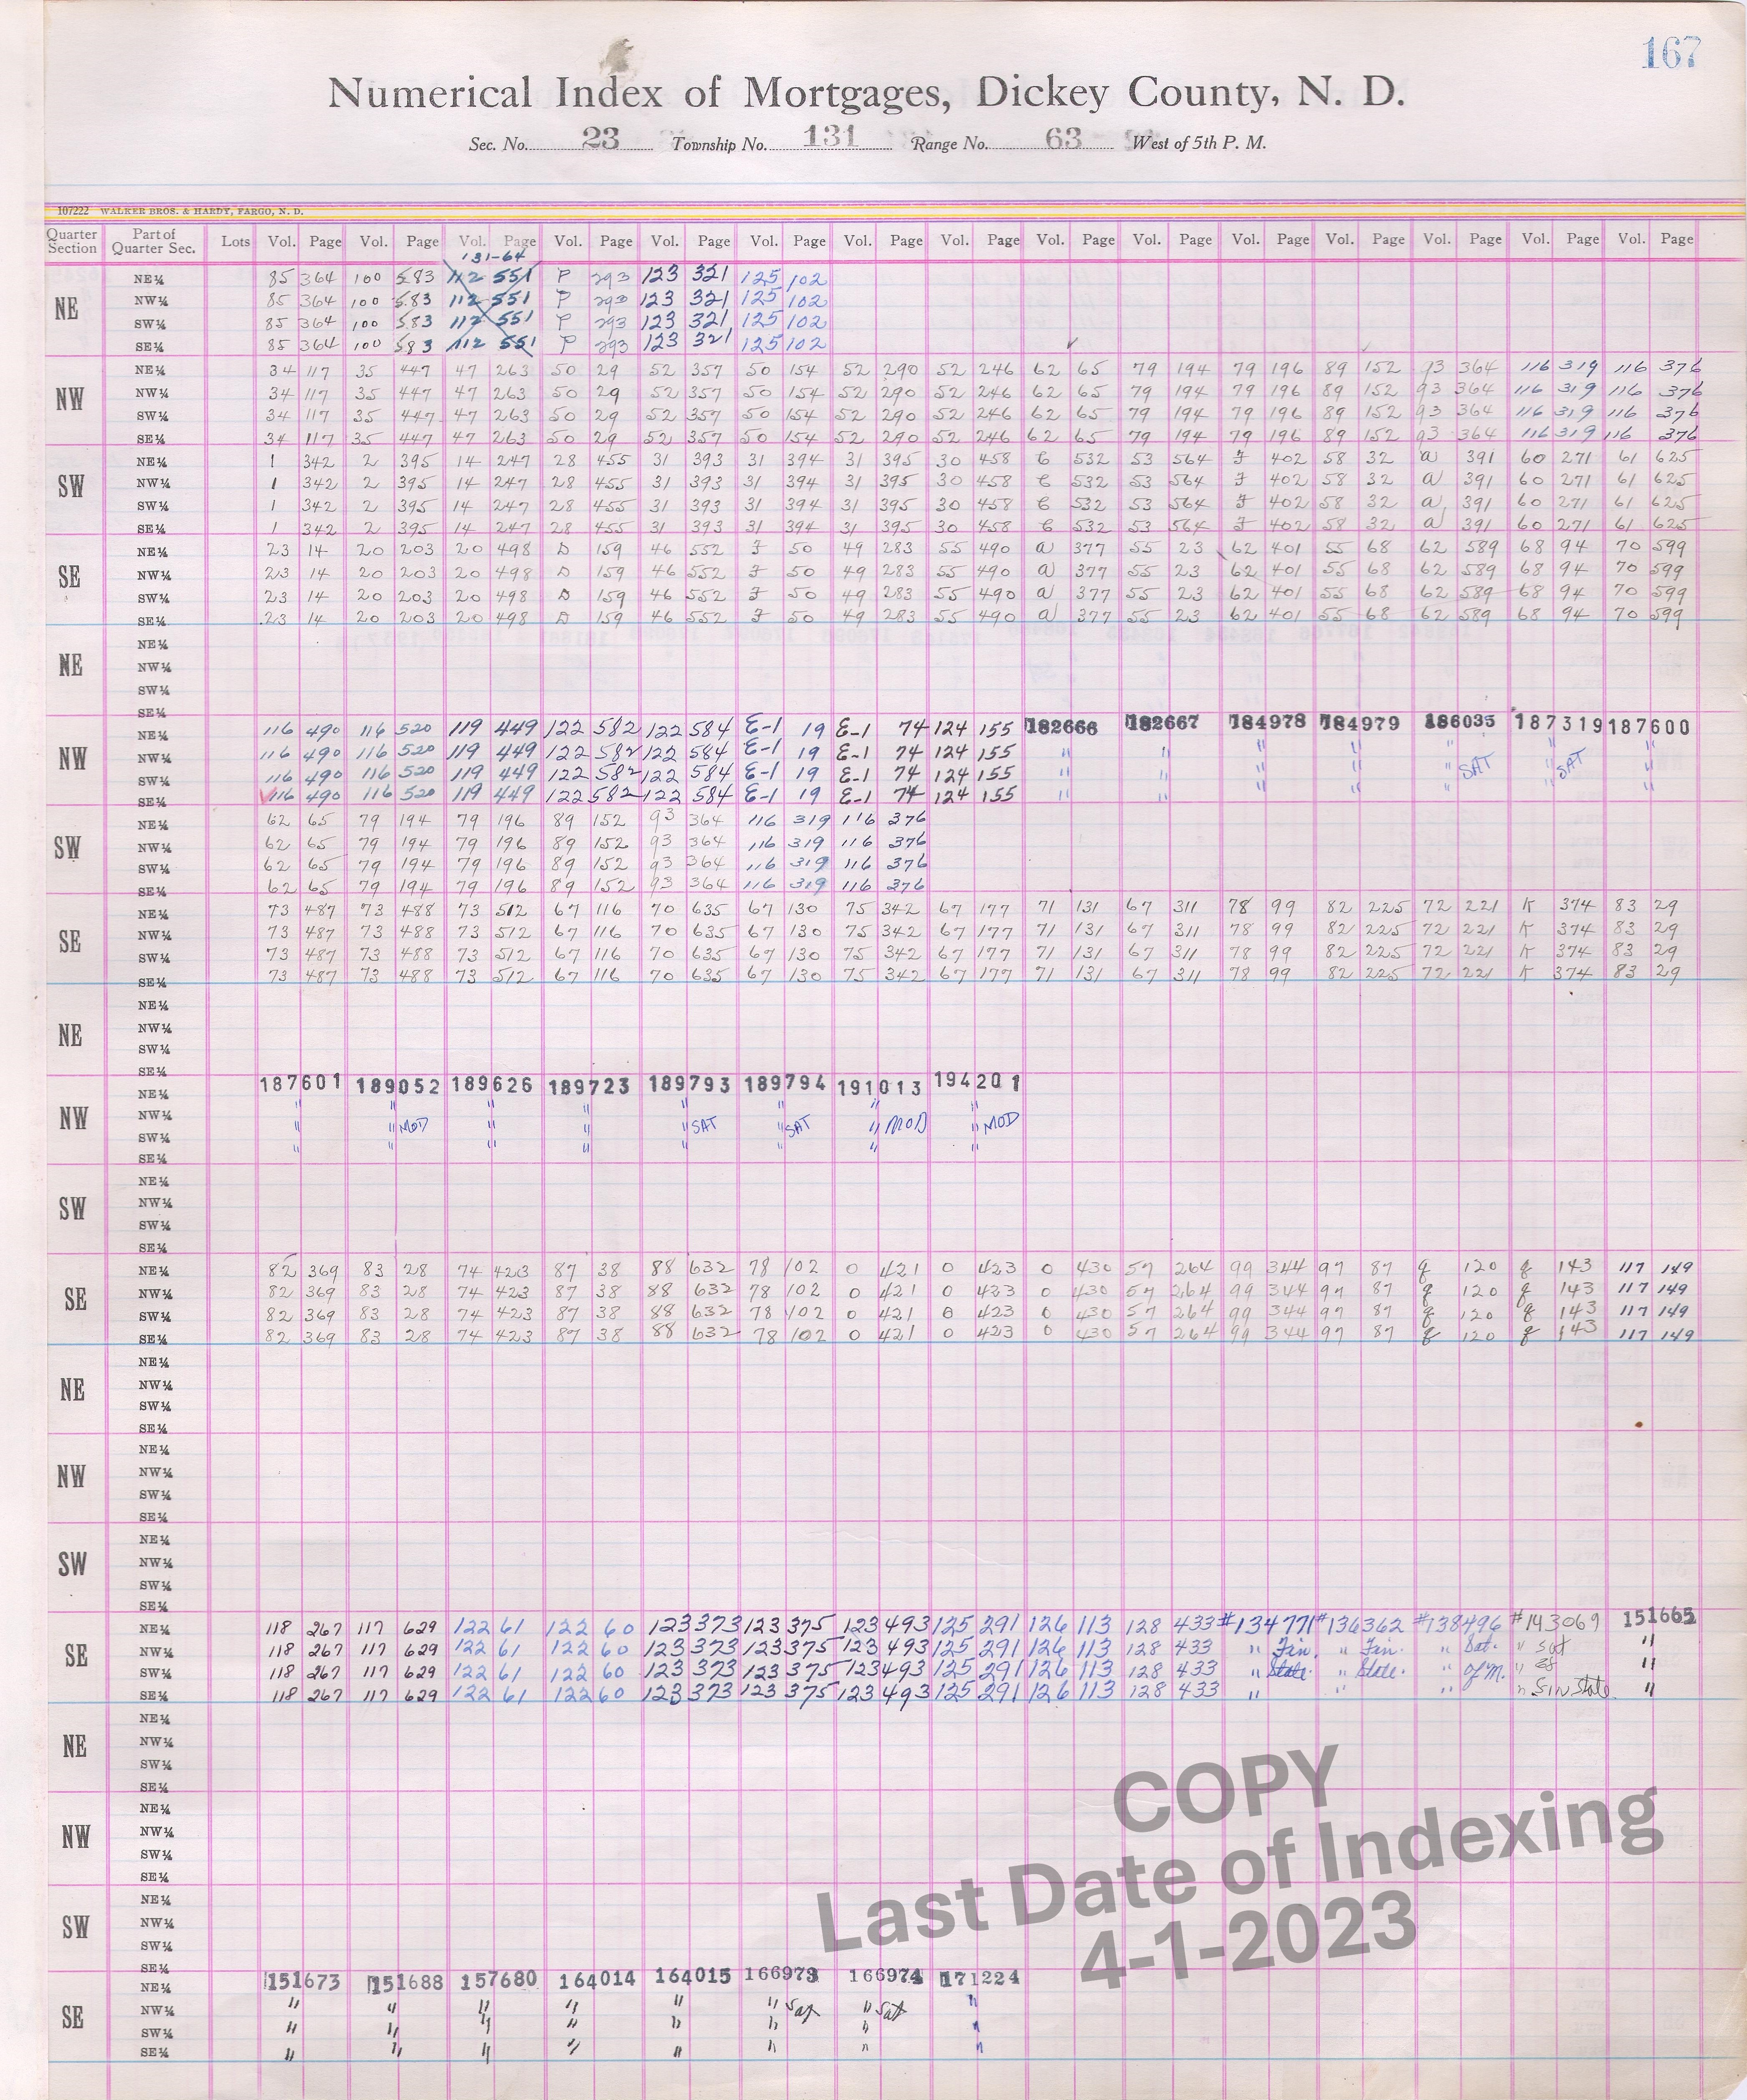 167
Numerical Index of Mortgages, Dickey County, N. D.
Sec. No. 23 Township No. 131 Range No. 63 West of 5th P. M.
107222 WALKER BROS. & HARDY, FARGO, N. D.
Quarter Section Part of Quarter Sec. Lots Vol. Page Vol. Page Vol. Page Vol. Page Vol. Page Vol. Page Vol. Page Vol. Page Vol. Page Vol. Page Vol. Page Vol. Page Vol. Page Vol. Page Vol. Page
131-64
NE NE¼ 85 364 100 583 112 551 P 293 123 321 125 102
NW¼ 85 364 100 583 112 551 P 293 123 321 125 102
SW¼ 85 364 100 583 112 551 P 293 123 321 125 102
SE¼ 85 364 100 583 112 551 P 293 123 321 125 102
NW NE¼ 34 117 35 447 47 263 50 29 52 357 50 154 52 290 52 246 62 65 79 194 79 196 89 152 93 364 116 319 116 376
NW¼ 34 117 35 447 47 263 50 29 52 357 50 154 52 290 52 246 62 65 79 194 79 196 89 152 93 364 116 319 116 376
SW¼ 34 117 35 447 47 263 50 29 52 357 50 154 52 290 52 246 62 65 79 194 79 196 89 152 93 364 116 319 116 376
SE¼ 34 117 35 447 47 263 50 29 52 357 50 154 52 290 52 246 62 65 79 194 79 196 89 152 93 364 116 319 116 376
SW NE¼ 1 342 2 395 14 247 28 455 31 393 31 394 31 395 30 458 C 532 53 564 F 402 58 32 a 391 60 271 61 625
NW¼ 1 342 2 395 14 247 28 455 31 393 31 394 31 395 30 458 C 532 53 564 F 402 58 32 a 391 60 271 61 625
SW¼ 1 342 2 395 14 247 28 455 31 393 31 394 31 395 30 458 C 532 53 564 F 402 58 32 a 391 60 271 61 625
SE¼ 1 342 2 395 14 247 28 455 31 393 31 394 31 395 30 458 C 532 53 564 F 402 58 32 a 391 60 271 61 625
SE NE¼ 23 14 20 203 20 498 D 159 46 552 F 50 49 283 55 490 a 377 55 23 62 401 55 68 62 589 68 94 70 599
NW¼ 23 14 20 203 20 498 D 159 46 552 F 50 49 283 55 490 a 377 55 23 62 401 55 68 62 589 68 94 70 599
SW¼ 23 14 20 203 20 498 D 159 46 552 F 50 49 283 55 490 a 377 55 23 62 401 55 68 62 589 68 94 70 599
SE¼ 23 14 20 203 20 498 D 159 46 552 F 50 49 283 55 490 a 377 55 23 62 401 55 68 62 589 68 94 70 599
NE NE¼
NW¼
SW¼
SE¼
NW NE¼ 116 490 116 520 119 449 122 582 122 584 E-1 19 E-1 74 124 155 182666 182667 184978 184979 186035 187319 187600
NW¼ 116 490 116 520 119 449 122 582 122 584 E-1 19 E-1 74 124 155 " " " " " SAT " SAT "
SW¼ 116 490 116 520 119 449 122 582 122 584 E-1 19 E-1 74 124 155 " " " " " " "
SE¼ 116 490 116 520 119 449 122 582 122 584 E-1 19 E-1 74 124 155 " " " " " " "
SW NE¼ 62 65 79 194 79 196 89 152 93 364 116 319 116 376
NW¼ 62 65 79 194 79 196 89 152 93 364 116 319 116 376
SW¼ 62 65 79 194 79 196 89 152 93 364 116 319 116 376
SE¼ 62 65 79 194 79 196 89 152 93 364 116 319 116 376
SE NE¼ 73 487 73 488 73 512 67 116 70 635 67 130 75 342 67 177 71 131 67 311 78 99 82 225 72 221 K 374 83 29
NW¼ 73 487 73 488 73 512 67 116 70 635 67 130 75 342 67 177 71 131 67 311 78 99 82 225 72 221 K 374 83 29
SW¼ 73 487 73 488 73 512 67 116 70 635 67 130 75 342 67 177 71 131 67 311 78 99 82 225 72 221 K 374 83 29
SE¼ 73 487 73 488 73 512 67 116 70 635 67 130 75 342 67 177 71 131 67 311 78 99 82 225 72 221 K 374 83 29
NE NE¼
NW¼
SW¼
SE¼
NW NE¼ 187601 189052 189626 189723 189793 189794 191013 194201
NW¼ " " MOD " " " SAT " SAT " MOD " MOD
SW¼ " " " " " " " "
SE¼ " " " " " " " "
SW NE¼
NW¼
SW¼
SE¼
SE NE¼ 82 369 83 28 74 423 87 38 88 632 78 102 0 421 0 423 0 430 57 264 99 344 97 87 q 120 q 143 117 149
NW¼ 82 369 83 28 74 423 87 38 88 632 78 102 0 421 0 423 0 430 57 264 99 344 97 87 q 120 q 143 117 149
SW¼ 82 369 83 28 74 423 87 38 88 632 78 102 0 421 0 423 0 430 57 264 99 344 97 87 q 120 q 143 117 149
SE¼ 82 369 83 28 74 423 87 38 88 632 78 102 0 421 0 423 0 430 57 264 99 344 97 87 q 120 q 143 117 149
NE NE¼
NW¼
SW¼
SE¼
NW NE¼
NW¼
SW¼
SE¼
SW NE¼
NW¼
SW¼
SE¼
SE NE¼ 118 267 117 629 122 61 122 60 123 373 123 375 123 493 125 291 126 113 128 433 #134771 #136362 #138496 #143069 151665
NW¼ 118 267 117 629 122 61 122 60 123 373 123 375 123 493 125 291 126 113 128 433 " Fin. " Fin. " Sat. " Sat "
SW¼ 118 267 117 629 122 61 122 60 123 373 123 375 123 493 125 291 126 113 128 433 " State. " State. " of M. " of "
SE¼ 118 267 117 629 122 61 122 60 123 373 123 375 123 493 125 291 126 113 128 433 " " " " Fin State. "
NE NE¼
NW¼
SW¼
SE¼
NW NE¼
NW¼
SW¼
SE¼
SW NE¼
NW¼
SW¼
SE¼
SE NE¼ 151673 151688 157680 164014 164015 166973 166974 171224
NW¼ " " " " " " Sat " Sat "
SW¼ " " " " " " " "
SE¼ " " " " " " " "
COPY
Last Date of Indexing
4-1-2023